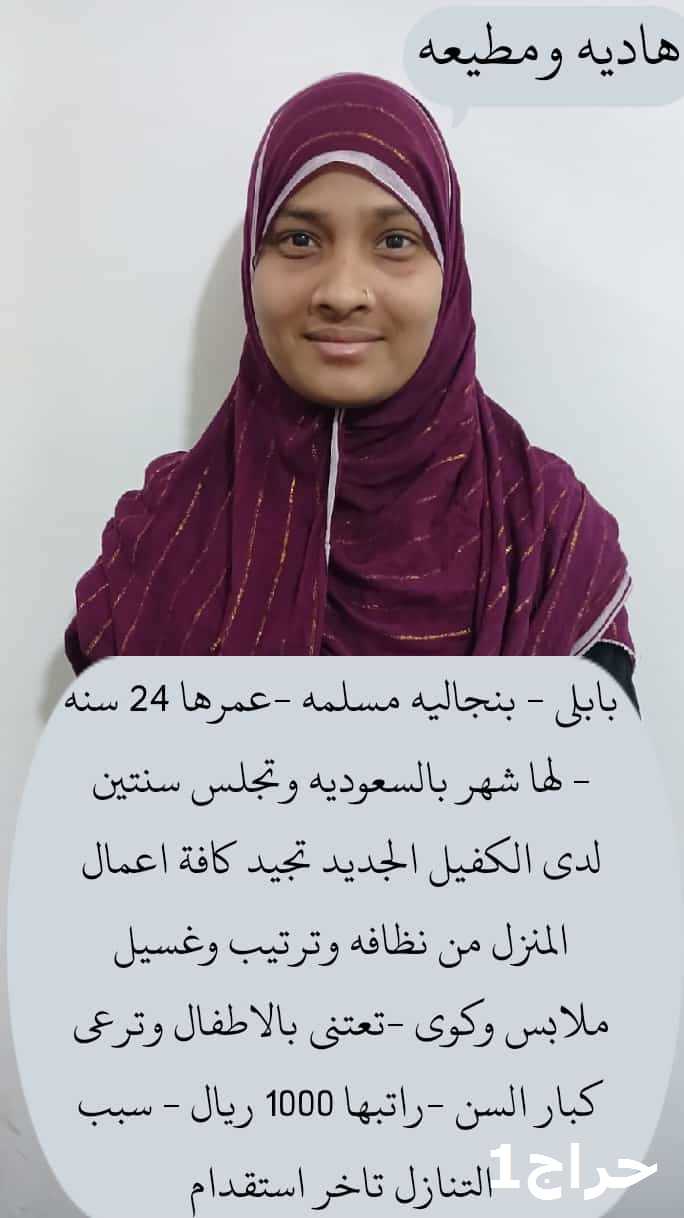 هاديه ومطيعه
بابلى - بنجاليه مسلمه -عمرها 24 سنه
- لها شهر بالسعوديه وتجلس سنتين
لدى الكفيل الجديد تجيد كافة اعمال
المنزل من نظافه وترتيب وغسيل
ملابس وكوى -تعتنى بالاطفال وترعى
كبار السن -راتبها 1000 ريال - سبب
التنازل تاخر استقدام
حراج1